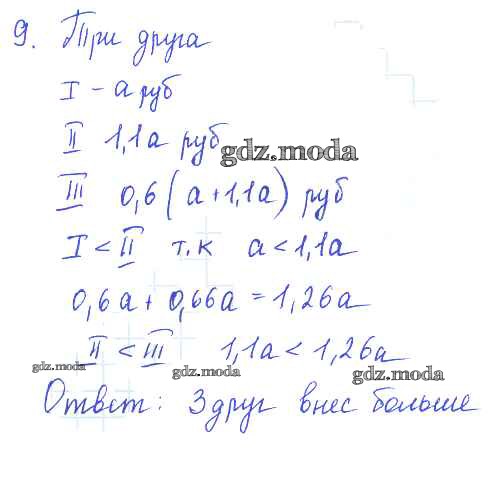 9. Три друга
I - а руб
II 1,1а руб
gdz.moda
III 0,6(а+1,1а) руб
I < II т.к а < 1,1а
0,6а + 0,66а = 1,26а
II < III 1,1а < 1,26а
gdz.moda gdz.moda gdz.moda
Ответ: 3 друг внес больше